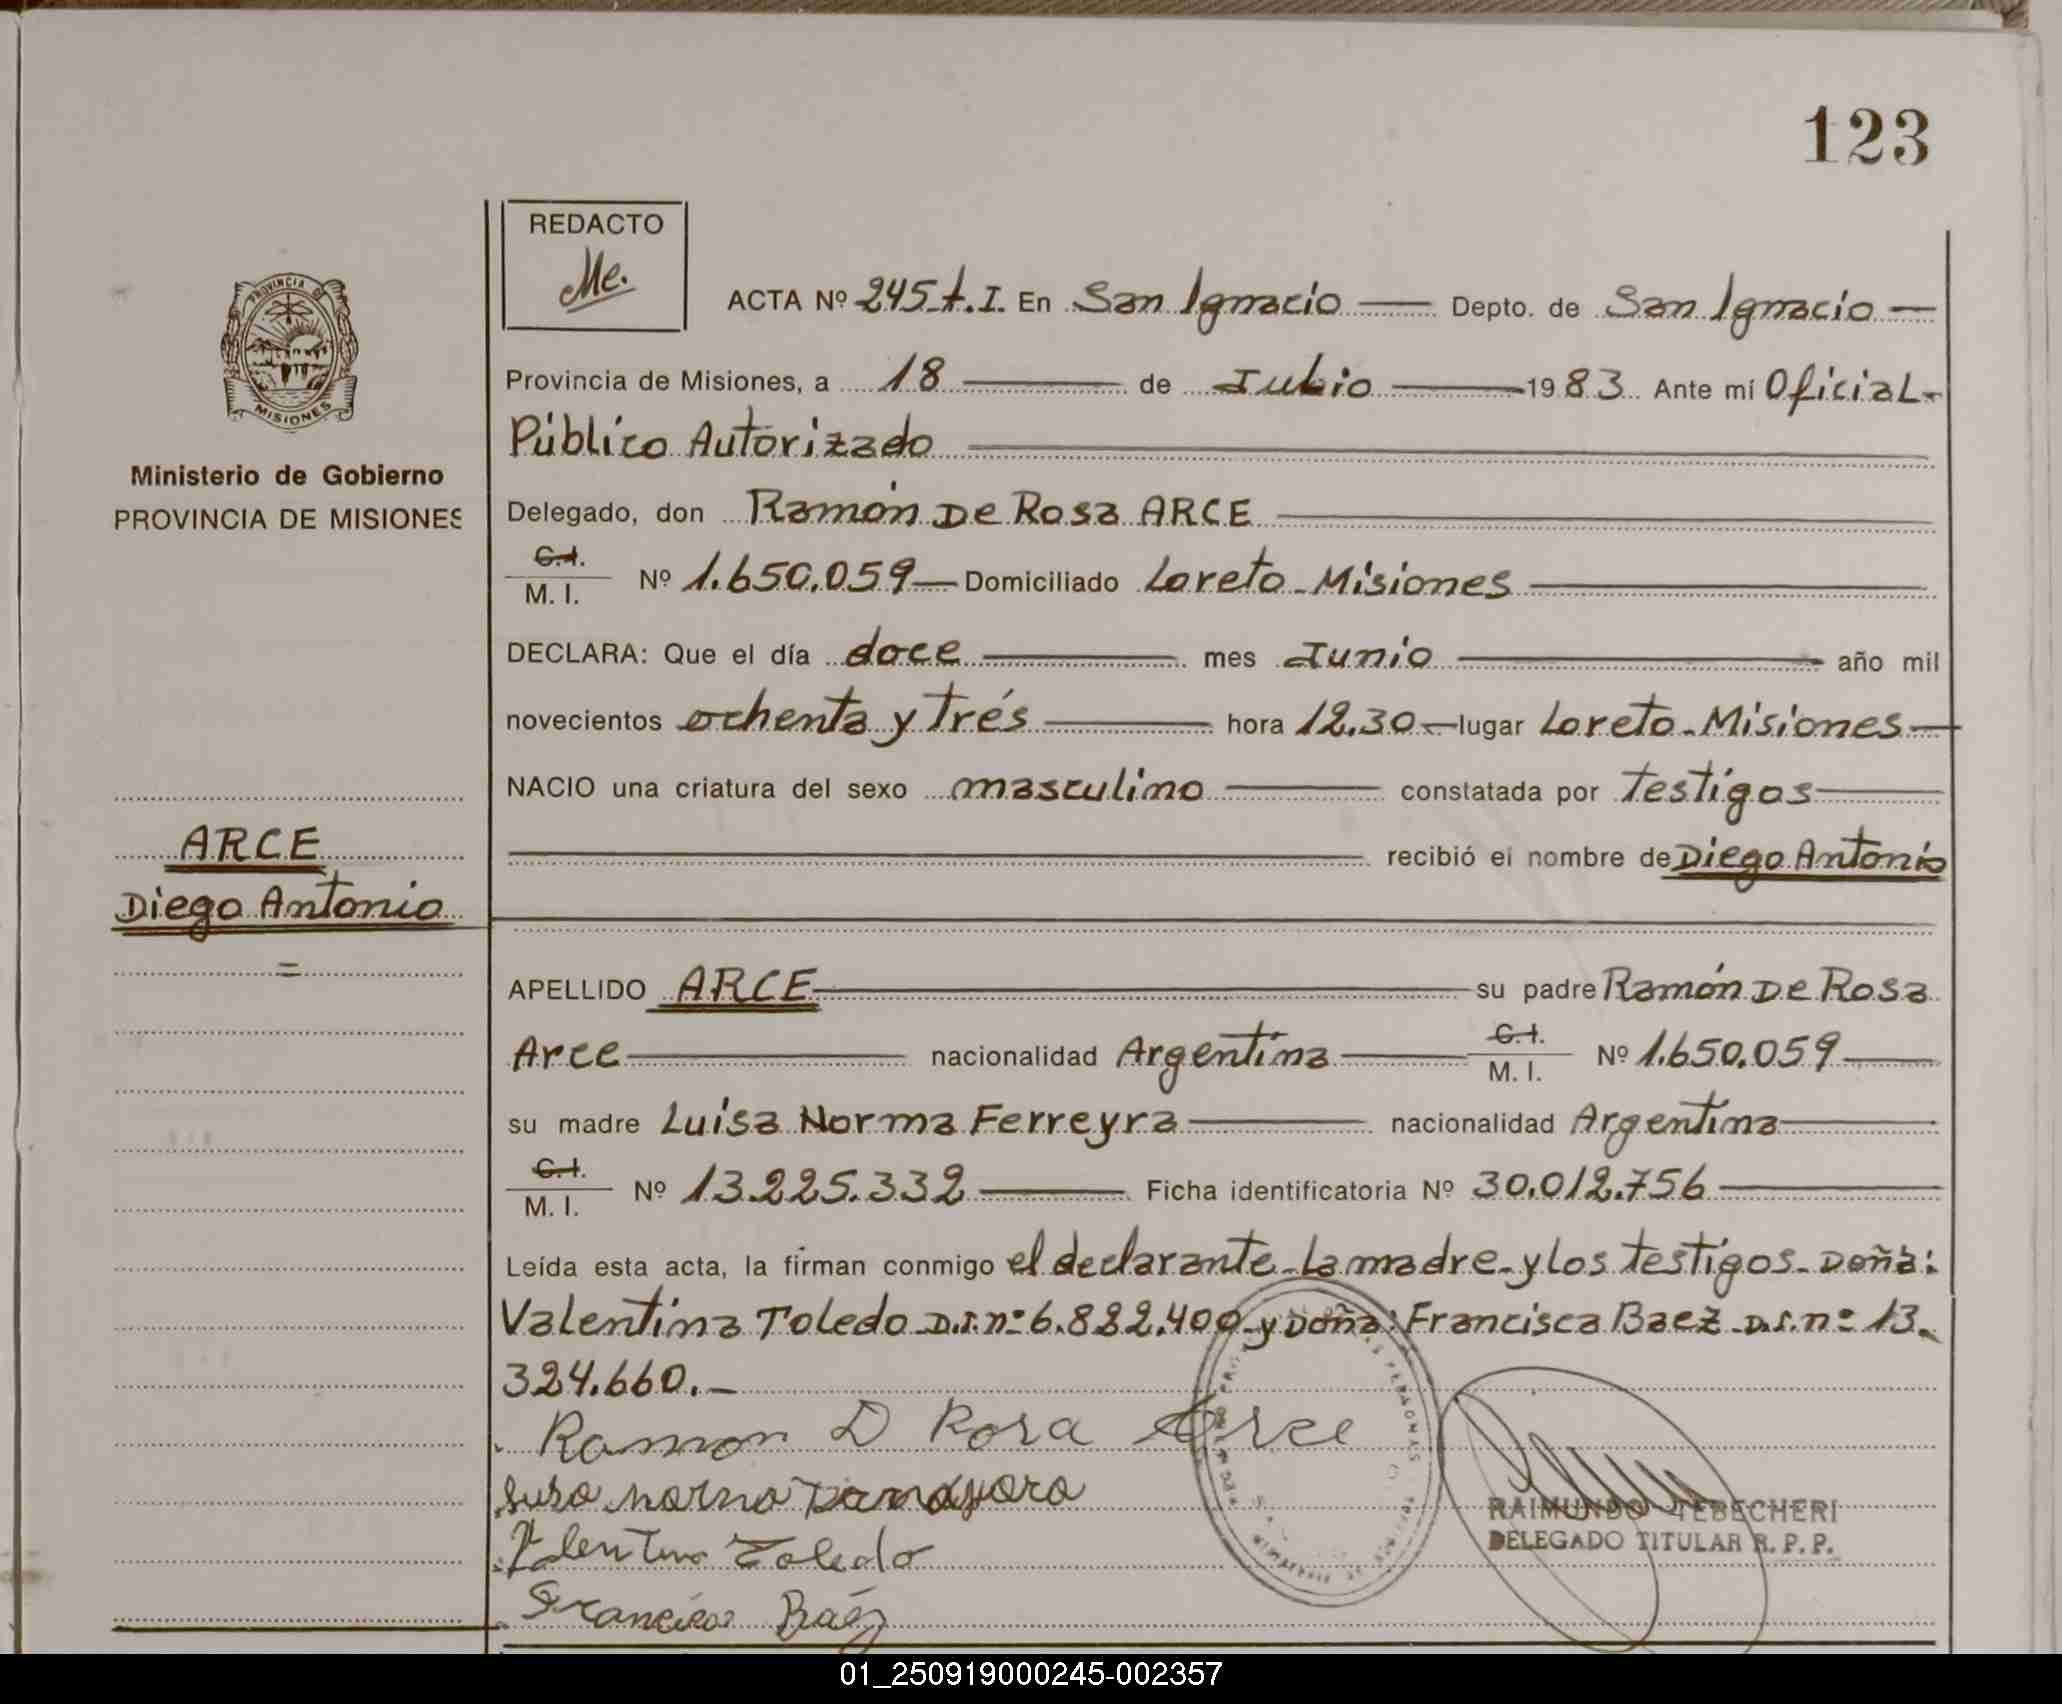 123
REDACTO
Me.
ACTA Nº 245 t.I. En San Ignacio — Depto. de San Ignacio —
Provincia de Misiones, a 18 — de Julio — 1983 Ante mí Oficial-
Público Autorizado
Delegado, don Ramón De Rosa ARCE
C.I.
M. I. Nº 1.650.059 — Domiciliado Loreto - Misiones
DECLARA: Que el día doce — mes Junio — año mil
novecientos ochenta y trés — hora 12.30 — lugar Loreto - Misiones —
NACIO una criatura del sexo masculino — constatada por testigos —
recibió el nombre de Diego Antonio
APELLIDO ARCE — su padre Ramón De Rosa
Arce — nacionalidad Argentina — C.I.
M. I. Nº 1.650.059 —
su madre Luisa Norma Ferreyra — nacionalidad Argentina —
C.I.
M. I. Nº 13.225.332 — Ficha identificatoria Nº 30.012.756 —
Leída esta acta, la firman conmigo el declarante - la madre - y los testigos - Doña:
Valentina Toledo D.I. nº 6.822.400 - y Doña: Francisca Baez - D.I. nº 13.
324.660.-
Ramon D Rosa Arce
Toledo
Francisca Baéz
RAIMUNDO TEBECHERI
DELEGADO TITULAR R. P. P.
PROVINCIA DE
MISIONES
Ministerio de Gobierno
PROVINCIA DE MISIONES
ARCE
Diego Antonio
=
01_250919000245-002357